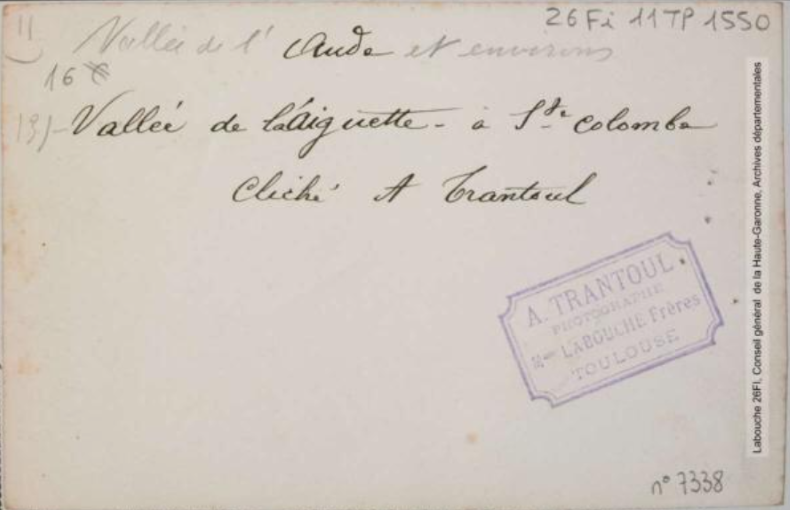 26 Fi 11 TP 1550
11
Vallée de l'Aude et environs
16
13/- Vallée de l'Aiguette - à Ste Colombe
Cliché A Trantoul
A. TRANTOUL
PHOTOGRAPHE
Mson LABOUCHE Frères
TOULOUSE
n° 7338
Labouche 26FI, Conseil général de la Haute-Garonne, Archives départementales